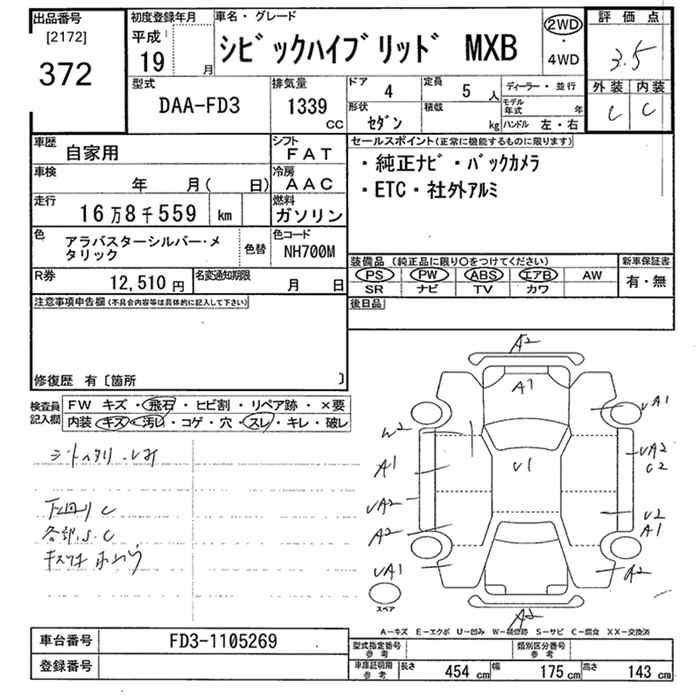 出品番号
[2172]
372
初度登録年月
平成
19 月
車名・グレード
シビックハイブリッド MXB
2WD
・
4WD
評価点
3.5
外装 内装
C C
型式
DAA-FD3
排気量
1339
CC
ドア
4
定員
5 人
形状
セダン
積載
kg
ディーラー・並行
モデル年式 年
ハンドル 左・右
車歴
自家用
シフト
FAT
車検
年 月( 日)
冷房
AAC
走行
16万8千559 km
燃料
ガソリン
色
アラバスターシルバー・メタリック
色替
色コード
NH700M
R券
12,510 円
名変通知期限
月 日
セールスポイント(正常に機能するものに限ります)
・純正ナビ・バックカメラ
・ETC・社外アルミ
装備品(純正品に限り○をつけてください)
PS PW ABS エアB AW
SR ナビ TV カワ
新車保証書
有・無
後日品
注意事項申告欄(不具合内容等は具体的に記入して下さい)
修復歴 有〔箇所 〕
検査員記入欄
FW キズ・飛石・ヒビ割・リペア跡・×要
内装 キズ・汚れ・コゲ・穴・スレ・キレ・破レ
下回りC
各部.S.C
A2
A1
UA1
W2
A1
UA2
C2
U1
UA2
A2
U2
A1
UA1
A2
A2
スペア
A-キズ E-エクボ U-凹み W-補修跡 S-サビ C-腐食 XX-交換済
車台番号
FD3-1105269
登録番号
型式指定番号
参考
類別区分番号
参考
車庫証明用
参考
長さ 454 cm 幅 175 cm 高さ 143 cm